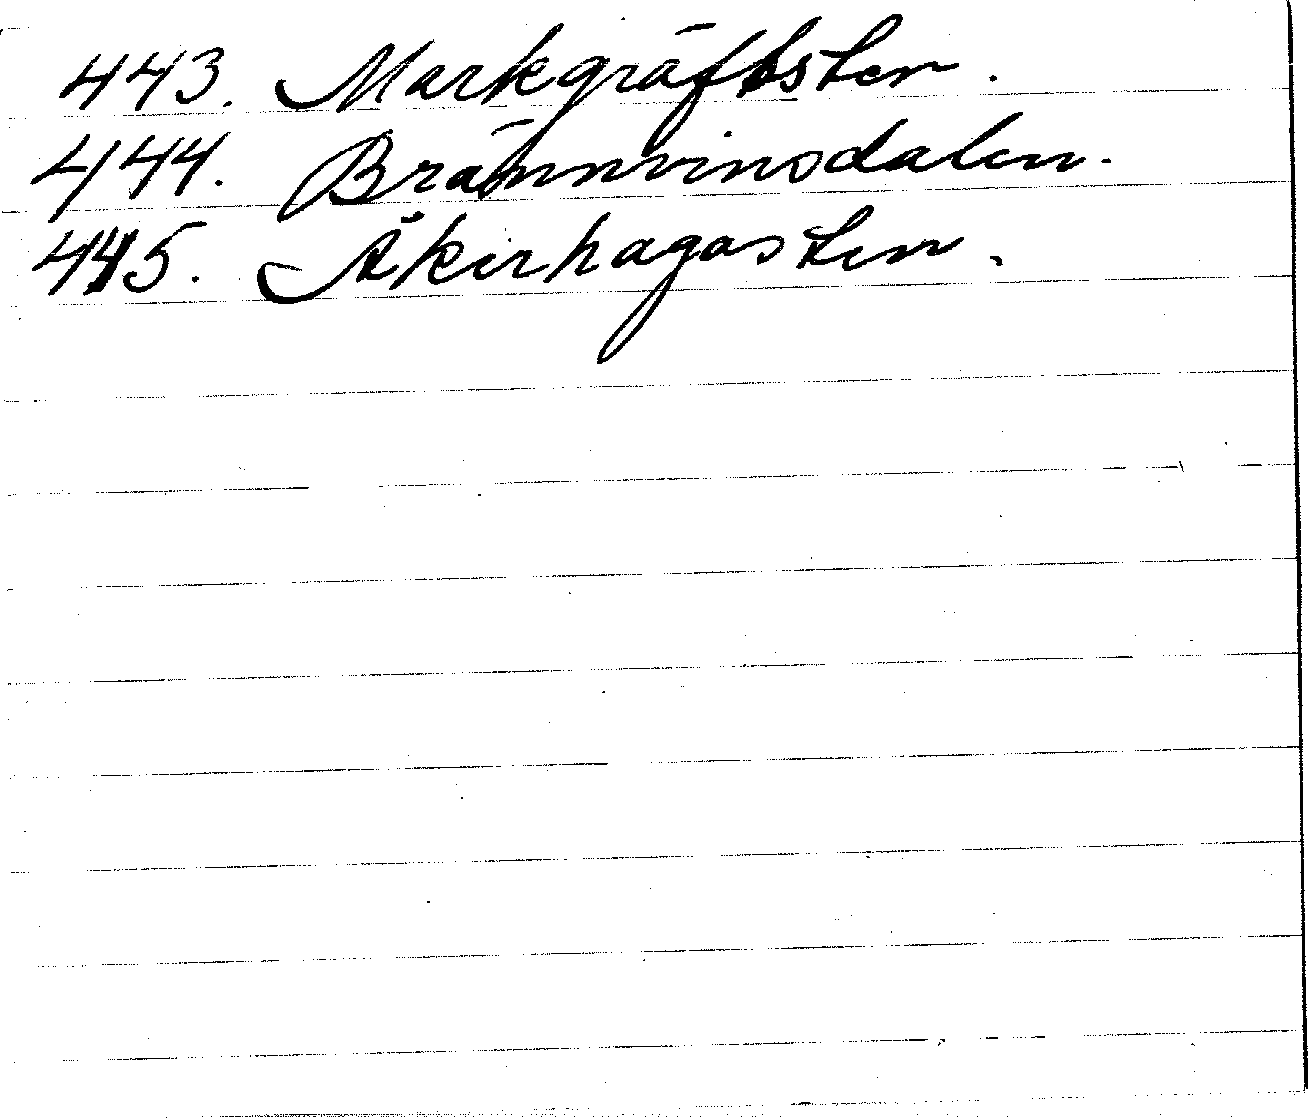 443. Markgräfvsten.
444. Brännvinsdalen.
445. Åkerhagasten.